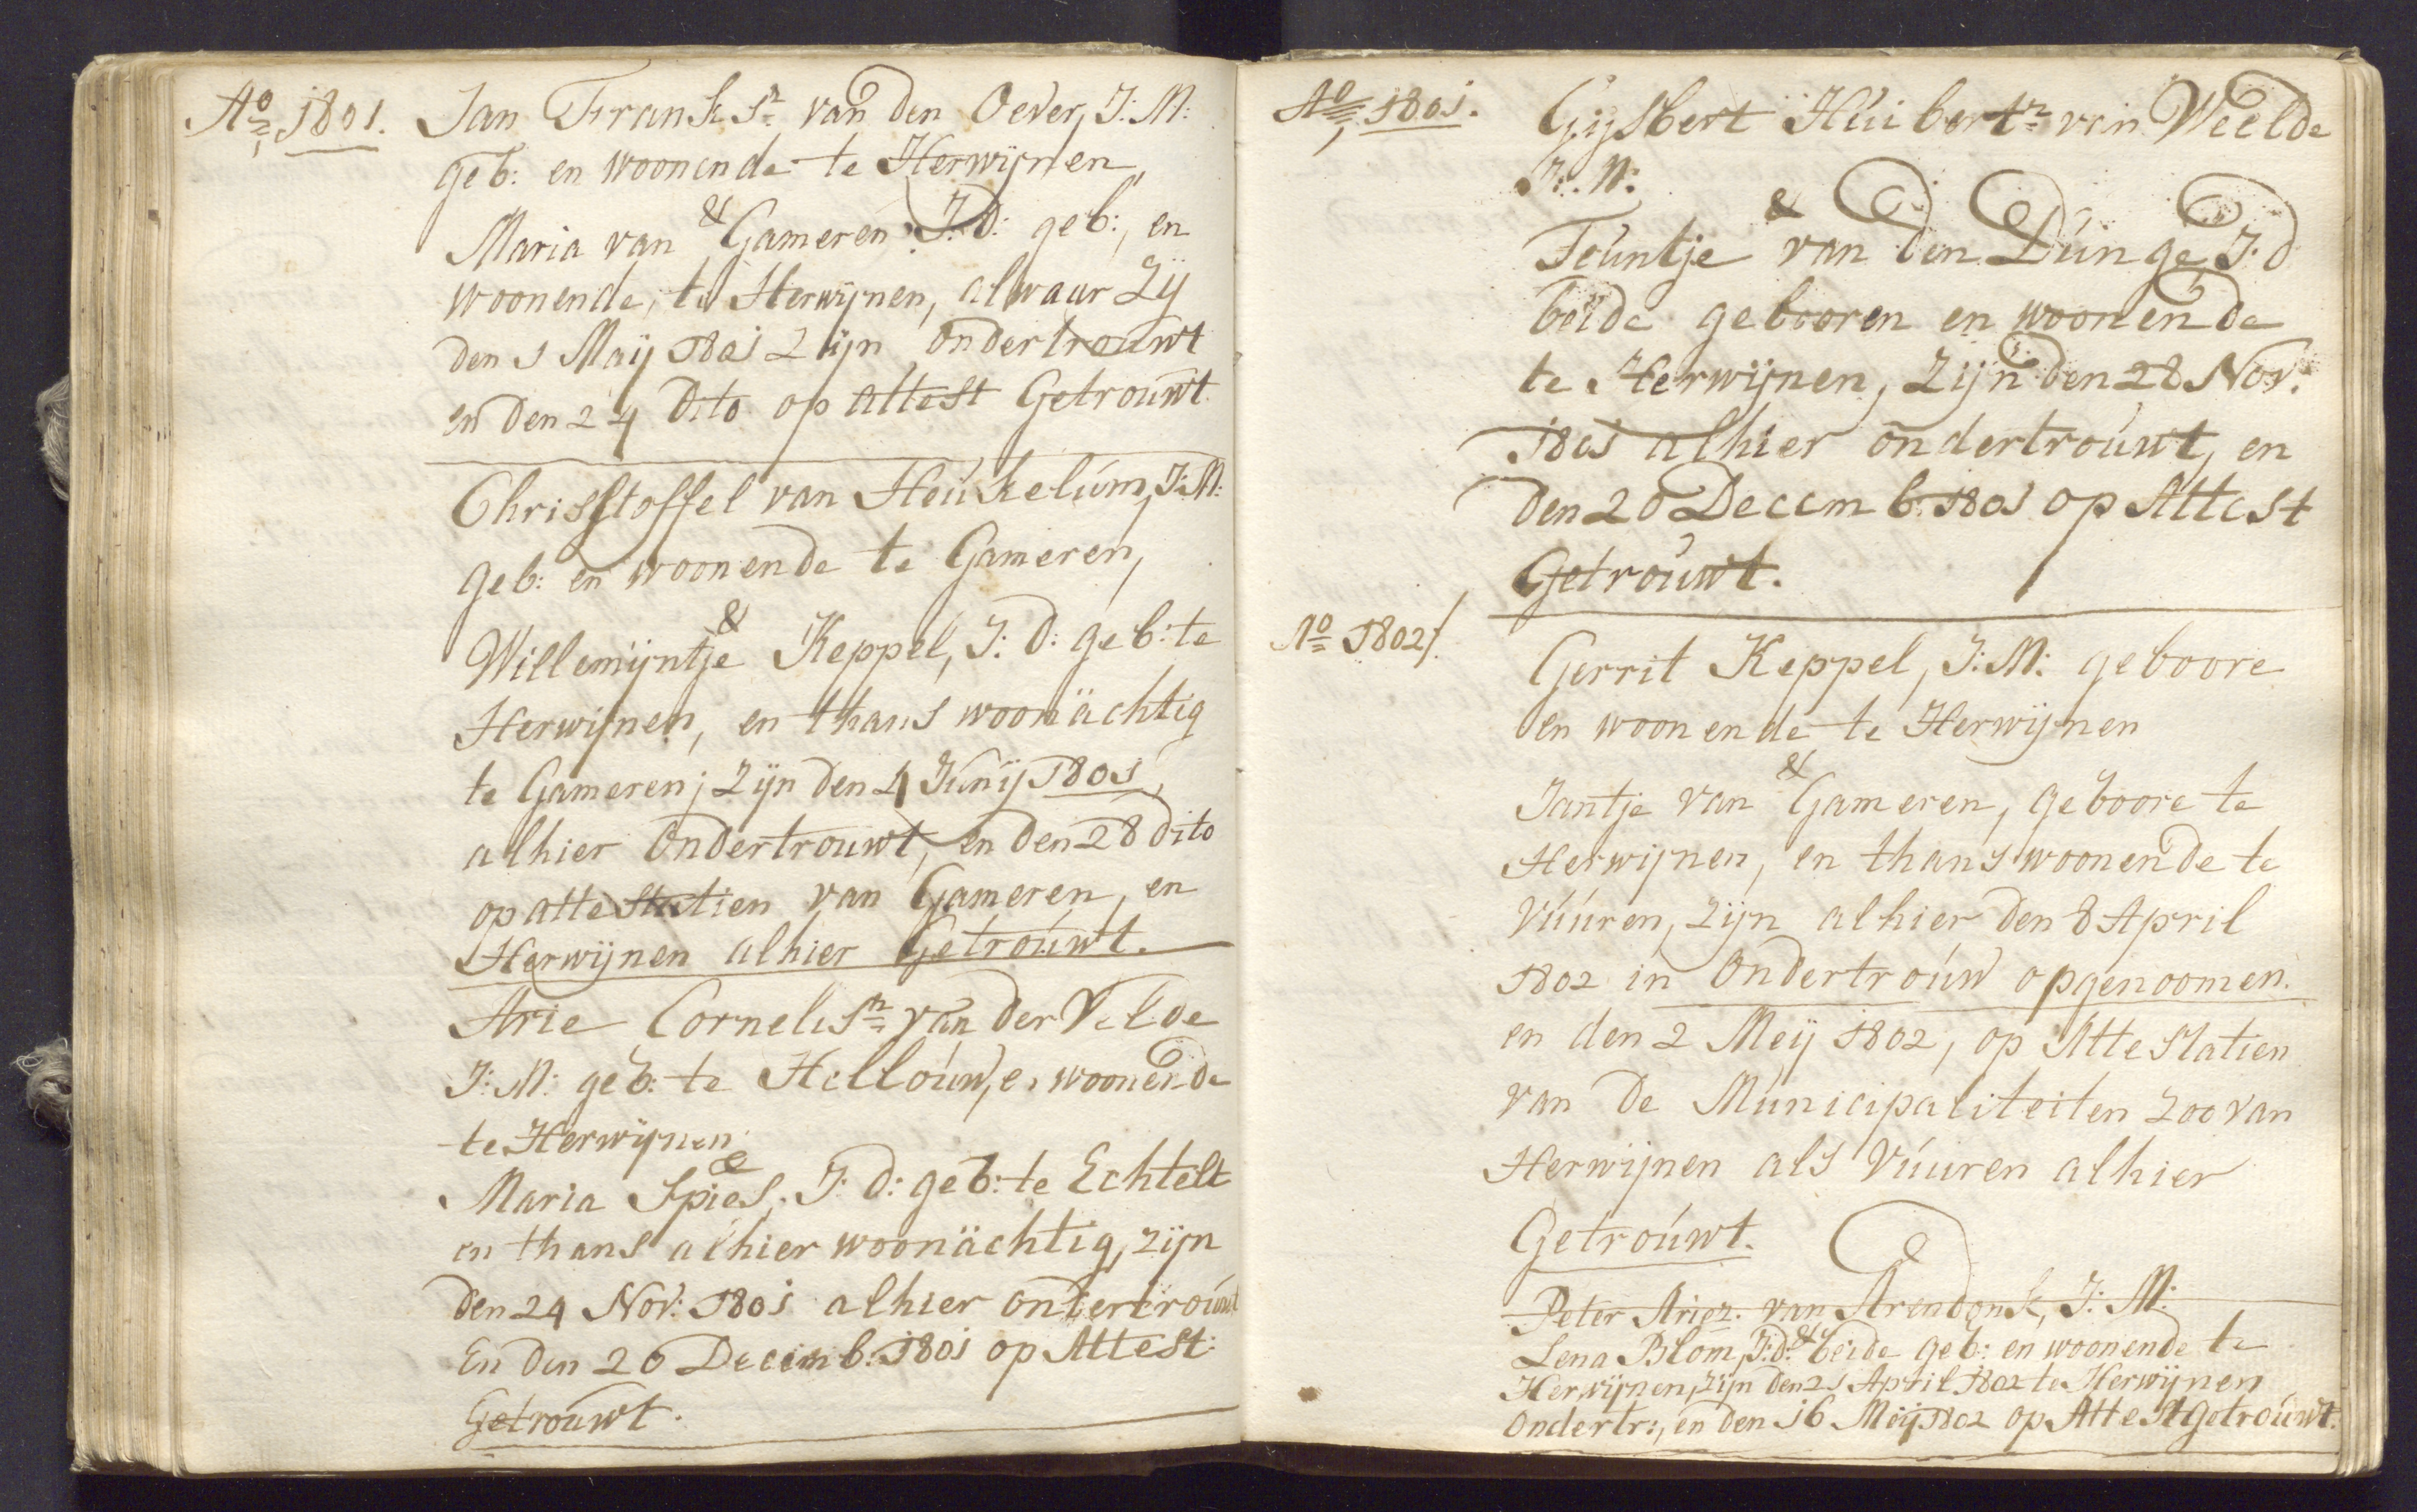 Aº 1801. Jan Franksn van den Oever, J: M:
geb: en woonende te Herwijnen,
&
Maria van Gameren J: D: geb:, en
woonende, te Herwijnen, alwaar Zij
den 1 Maij 1801 Zijn ondertrouwt
en den 24 dito op attest Getrouwt
Chrisstoffel van Heukelum, J: M:
geb: en woonende te Gameren,
&
Willemijntje Keppel, J: d: geb: te
Herwijnen, en thans woonächtig
te Gameren; Zijn den 4 Junij 1801,
alhier Ondertrouwt, en den 28 dito
op attestatien van Gameren, en
Herwijnen alhier Getrouwt.
Arie Cornelisn van der Velde
J: M: geb: te Hellouw, en woonende
te Herwijnen
&
Maria Spies, J: d: geb: te Echtelt
en thans alhier woonächtig, zijn
den 24 Nov: 1801 alhier ondertrouwt
En den 20 Decemb: 1801 op Attest:
Getrouwt.
Aº 1801. Gijsbert Huibertn van Weelde
J: M:
&
Teuntje van den Dunge, J: d
beide gebooren en woonende
te Herwijnen, Zijn den 28 Nov:
1801 alhier ondertrouwt, en
den 20 Decemb. 1801 op Attest
Getrouwt.
Aº 1802/. Gerrit Keppel, J: M: geboore
en woonende te Herwijnen
&
Jantje van Gameren, geboore te
Herwijnen, en thans woonende te
Vuuren, zijn alhier den 8 April
1802 in Ondertrouw opgenoomen.
en den 2 Meij 1802, op Attestatien
van de Municipaliteiten zoo van
Herwijnen als Vuuren alhier
Getrouwt.
Peter Ariez. van Arendonk, J: M:
&
Lena Blom, J: d: beide geb: en woonende te
Herwijnen, zijn den 21 April 1802 te Herwijnen
Ondertr:, en den 16 Meij 1802 op Attest getrouwt.